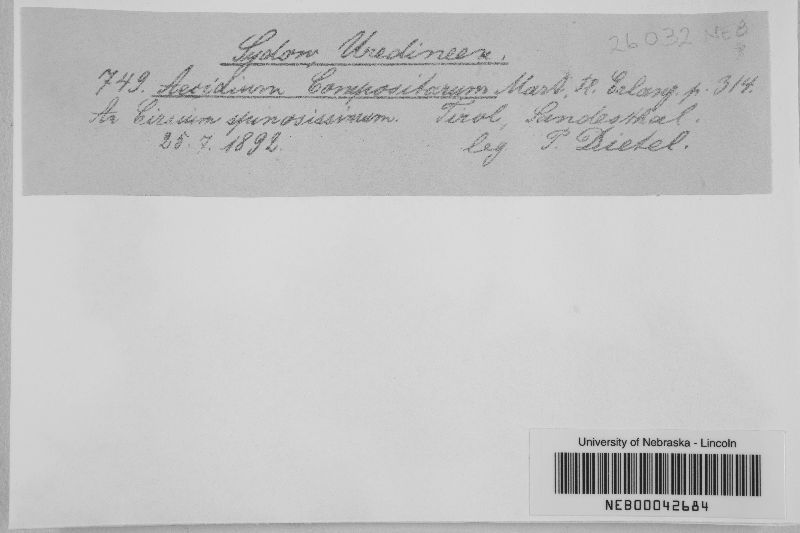 26032 NEB
Sydow Uredineen.
749. Aecidium Compositarum Mart. Fl. Erlang. p. 314.
An Cirsium spinosissimum. Tirol, Sundesthal.
25. 7. 1892. leg. P. Dietel.
University of Nebraska - Lincoln
NEB00042684